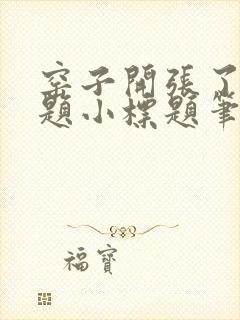 窑子開張了
題小標題筆
福寶